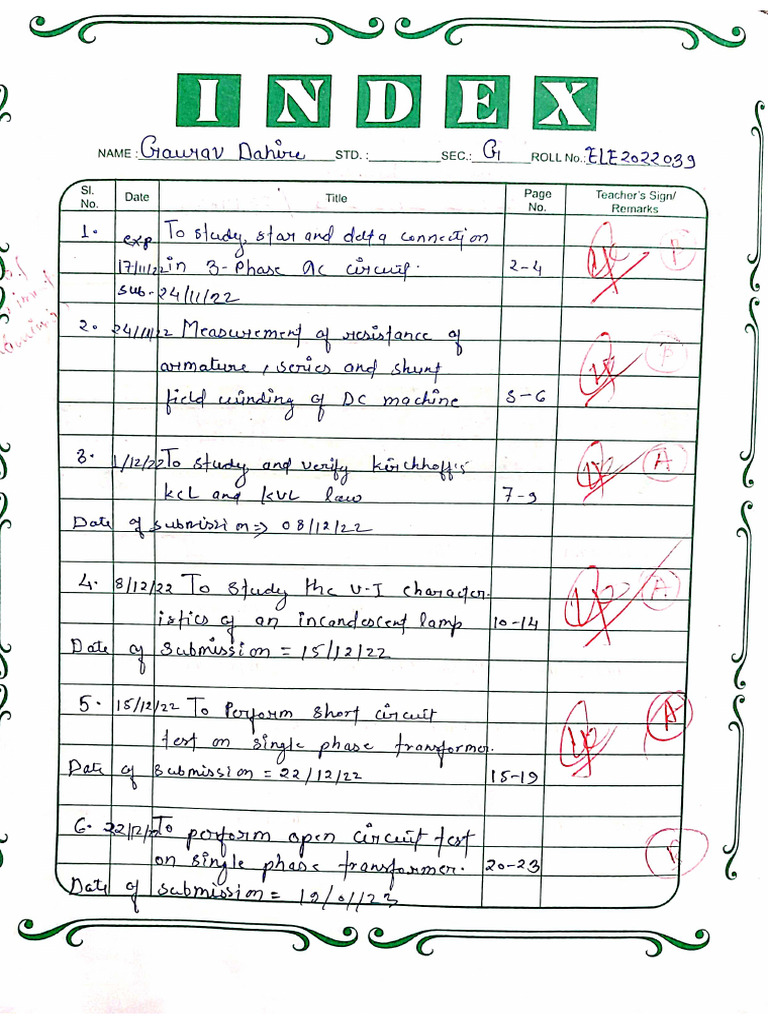 INDEX
NAME : Gaurav Dahire STD. : SEC.: G ROLL No.: ELE2022039
Sl. No. Date Title Page No. Teacher's Sign/ Remarks
1. exp To study star and delta connection B
17/11/22 in 3-Phase ac circuit. 2-4
sub- 24/11/22
2. 24/11/22 Measurement of resistance of B
armature, series and shunt
field winding of DC machine 5-6
3. 1/12/22 To study and verify kirchhoff's A
KCL and KVL law 7-9
Date of submission => 08/12/22
4. 8/12/22 To study the V-I character- A
istics of an incandescent lamp 10-14
Date of submission = 15/12/22
5. 15/12/22 To Perform short circuit A
test on single phase transformer.
Date of submission = 22/12/22 15-19
6. 22/12/22 To perform open circuit test
on single phase transformer. 20-23
Date of submission = 12/01/23